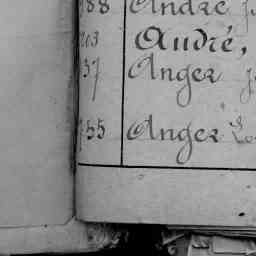 88 André
203 André,
37 Anger
755 Anger